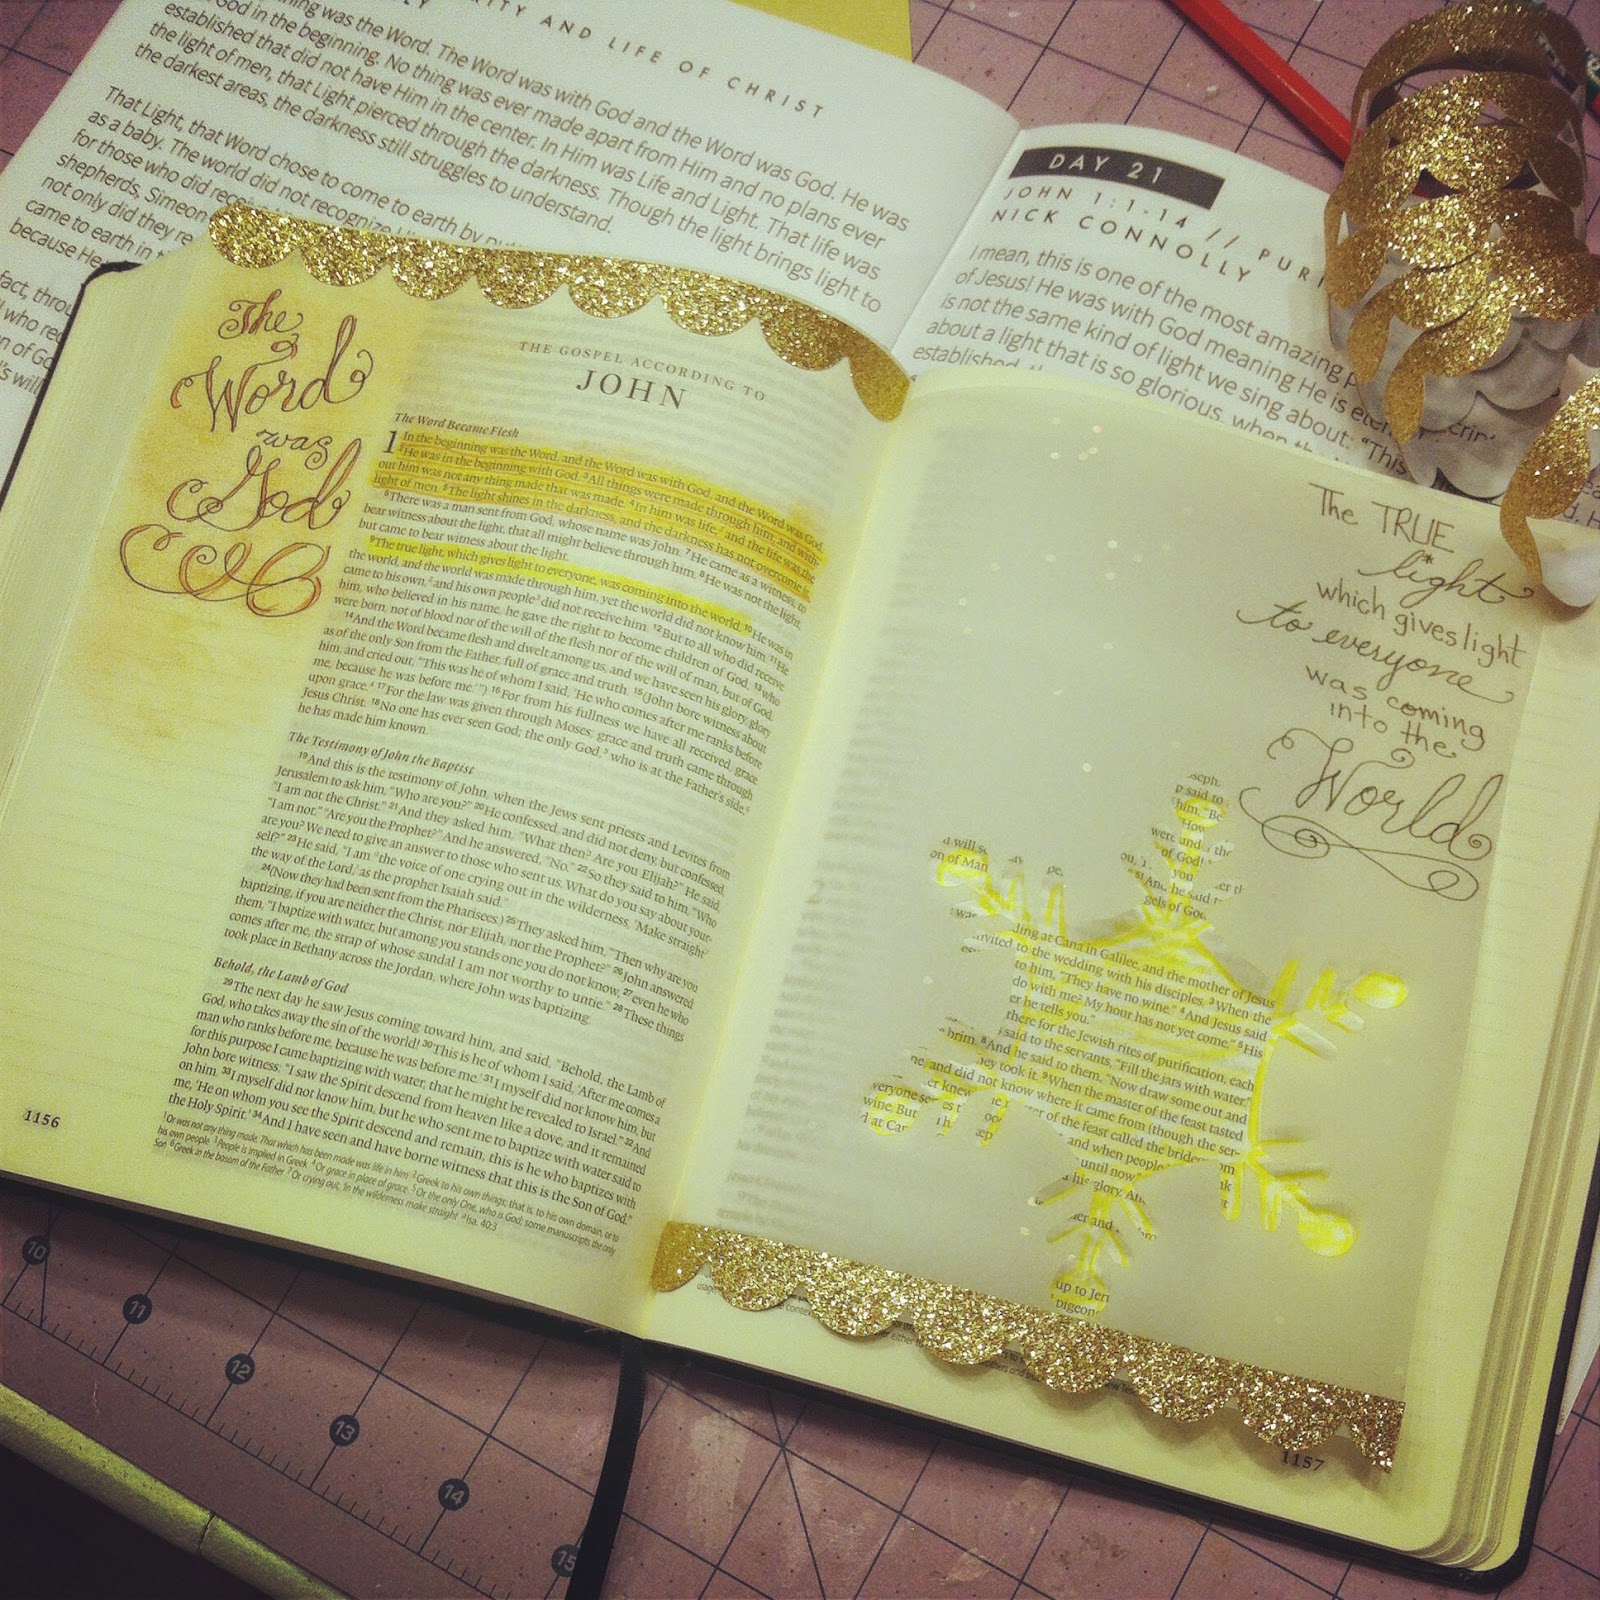 RITY AND LIFE OF CHRIST
thing was the Word. The Word was with God and the Word was God. He was
God in the beginning. No thing was ever made apart from Him and no plans ever
established that did not have Him in the center. In Him was Life and Light. That life was
the light of men, that Light pierced through the darkness. Though the light brings light to
the darkest areas, the darkness still struggles to understand.
That Light, that Word chose to come to earth by
as a baby. The world did not recognize
for those who did
shepherds, Simeon
not only did they
came to earth in
because He
fact,
DAY 21
JOHN 1:1-14 // PURI
NICK CONNOLLY
I mean, this is one of the most amazing
of Jesus! He was with God meaning He is
is not the same kind of light we sing about: "This
about a light that is so glorious, when
established,
The
Word
was
God
THE GOSPEL ACCORDING TO
JOHN
The Word Became Flesh
1 In the beginning was the Word, and the Word was with God, and the Word was God.
2 He was in the beginning with God. 3 All things were made through him, and with-
out him was not any thing made that was made. 4 In him was life, 1 and the life was the
light of men. 5 The light shines in the darkness, and the darkness has not overcome it.
6 There was a man sent from God, whose name was John. 7 He came as a witness, to
bear witness about the light, that all might believe through him. 8 He was not the light,
but came to bear witness about the light.
9 The true light, which gives light to everyone, was coming into the world. 10 He was in
the world, and the world was made through him, yet the world did not know him. 11 He
came to his own, 2 and his own people 3 did not receive him. 12 But to all who did receive
him, who believed in his name, he gave the right to become children of God, 13 who
were born, not of blood nor of the will of the flesh nor of the will of man, but of God.
14 And the Word became flesh and dwelt among us, and we have seen his glory, glory
as of the only Son from the Father, full of grace and truth. 15 (John bore witness about
him, and cried out, "This was he of whom I said, 'He who comes after me ranks before
me, because he was before me.'") 16 For from his fullness we have all received, grace
upon grace. 4 17 For the law was given through Moses; grace and truth came through
Jesus Christ. 18 No one has ever seen God; the only God, 5 who is at the Father's side, 6
he has made him known.
The Testimony of John the Baptist
19 And this is the testimony of John, when the Jews sent priests and Levites from
Jerusalem to ask him, "Who are you?" 20 He confessed, and did not deny, but confessed,
"I am not the Christ." 21 And they asked him, "What then? Are you Elijah?" He said,
"I am not." "Are you the Prophet?" And he answered, "No." 22 So they said to him, "Who
are you? We need to give an answer to those who sent us. What do you say about your-
self?" 23 He said, "I am a the voice of one crying out in the wilderness, 'Make straight 7
the way of the Lord,' as the prophet Isaiah said."
24 (Now they had been sent from the Pharisees.) 25 They asked him, "Then why are you
baptizing, if you are neither the Christ, nor Elijah, nor the Prophet?" 26 John answered
them, "I baptize with water, but among you stands one you do not know, 27 even he who
comes after me, the strap of whose sandal I am not worthy to untie." 28 These things
took place in Bethany across the Jordan, where John was baptizing.
Behold, the Lamb of God
29 The next day he saw Jesus coming toward him, and said, "Behold, the Lamb of
God, who takes away the sin of the world! 30 This is he of whom I said, 'After me comes a
man who ranks before me, because he was before me.' 31 I myself did not know him, but
for this purpose I came baptizing with water, that he might be revealed to Israel." 32 And
John bore witness: "I saw the Spirit descend from heaven like a dove, and it remained
on him. 33 I myself did not know him, but he who sent me to baptize with water said to
me, 'He on whom you see the Spirit descend and remain, this is he who baptizes with
the Holy Spirit.' 34 And I have seen and have borne witness that this is the Son of God."
1 Or was not any thing made. That which has been made was life in him 2 Greek to his own things; that is, to his own domain, or to
his own people 3 People is implied in Greek 4 Or grace in place of grace 5 Or the only One, who is God; some manuscripts the only
Son 6 Greek in the bosom of the Father 7 Or crying out, 'In the wilderness make straight a Isa. 40:3
1156
The TRUE
light
which gives light
to everyone
was coming
into the
World
seph.
p said to
him, "Be
"How
were and
of God!
ou, I
And he said
gels of God
d will
on of Man
pe,
was
ding at Cana in Galilee, and the mother of Jesus
invited to the wedding with his disciples. 3 When the
to him, "They have no wine." 4 And Jesus said
do with me? My hour has not yet come." 5 His
er he tells you."
there for the Jewish rites of purification, each
said to the servants, "Fill the jars with water."
brim. 8 And he said to them, "Now draw some out and
they took it. 9 When the master of the feast tasted
ne, and did not know where it came from (though the ser-
er knew
er of the feast called the bridegroom
everyone
wine. But
and when people
until now."
d at Car
his glory. And
up to Jer
pigeon
1157
10
11
12
13
14
15